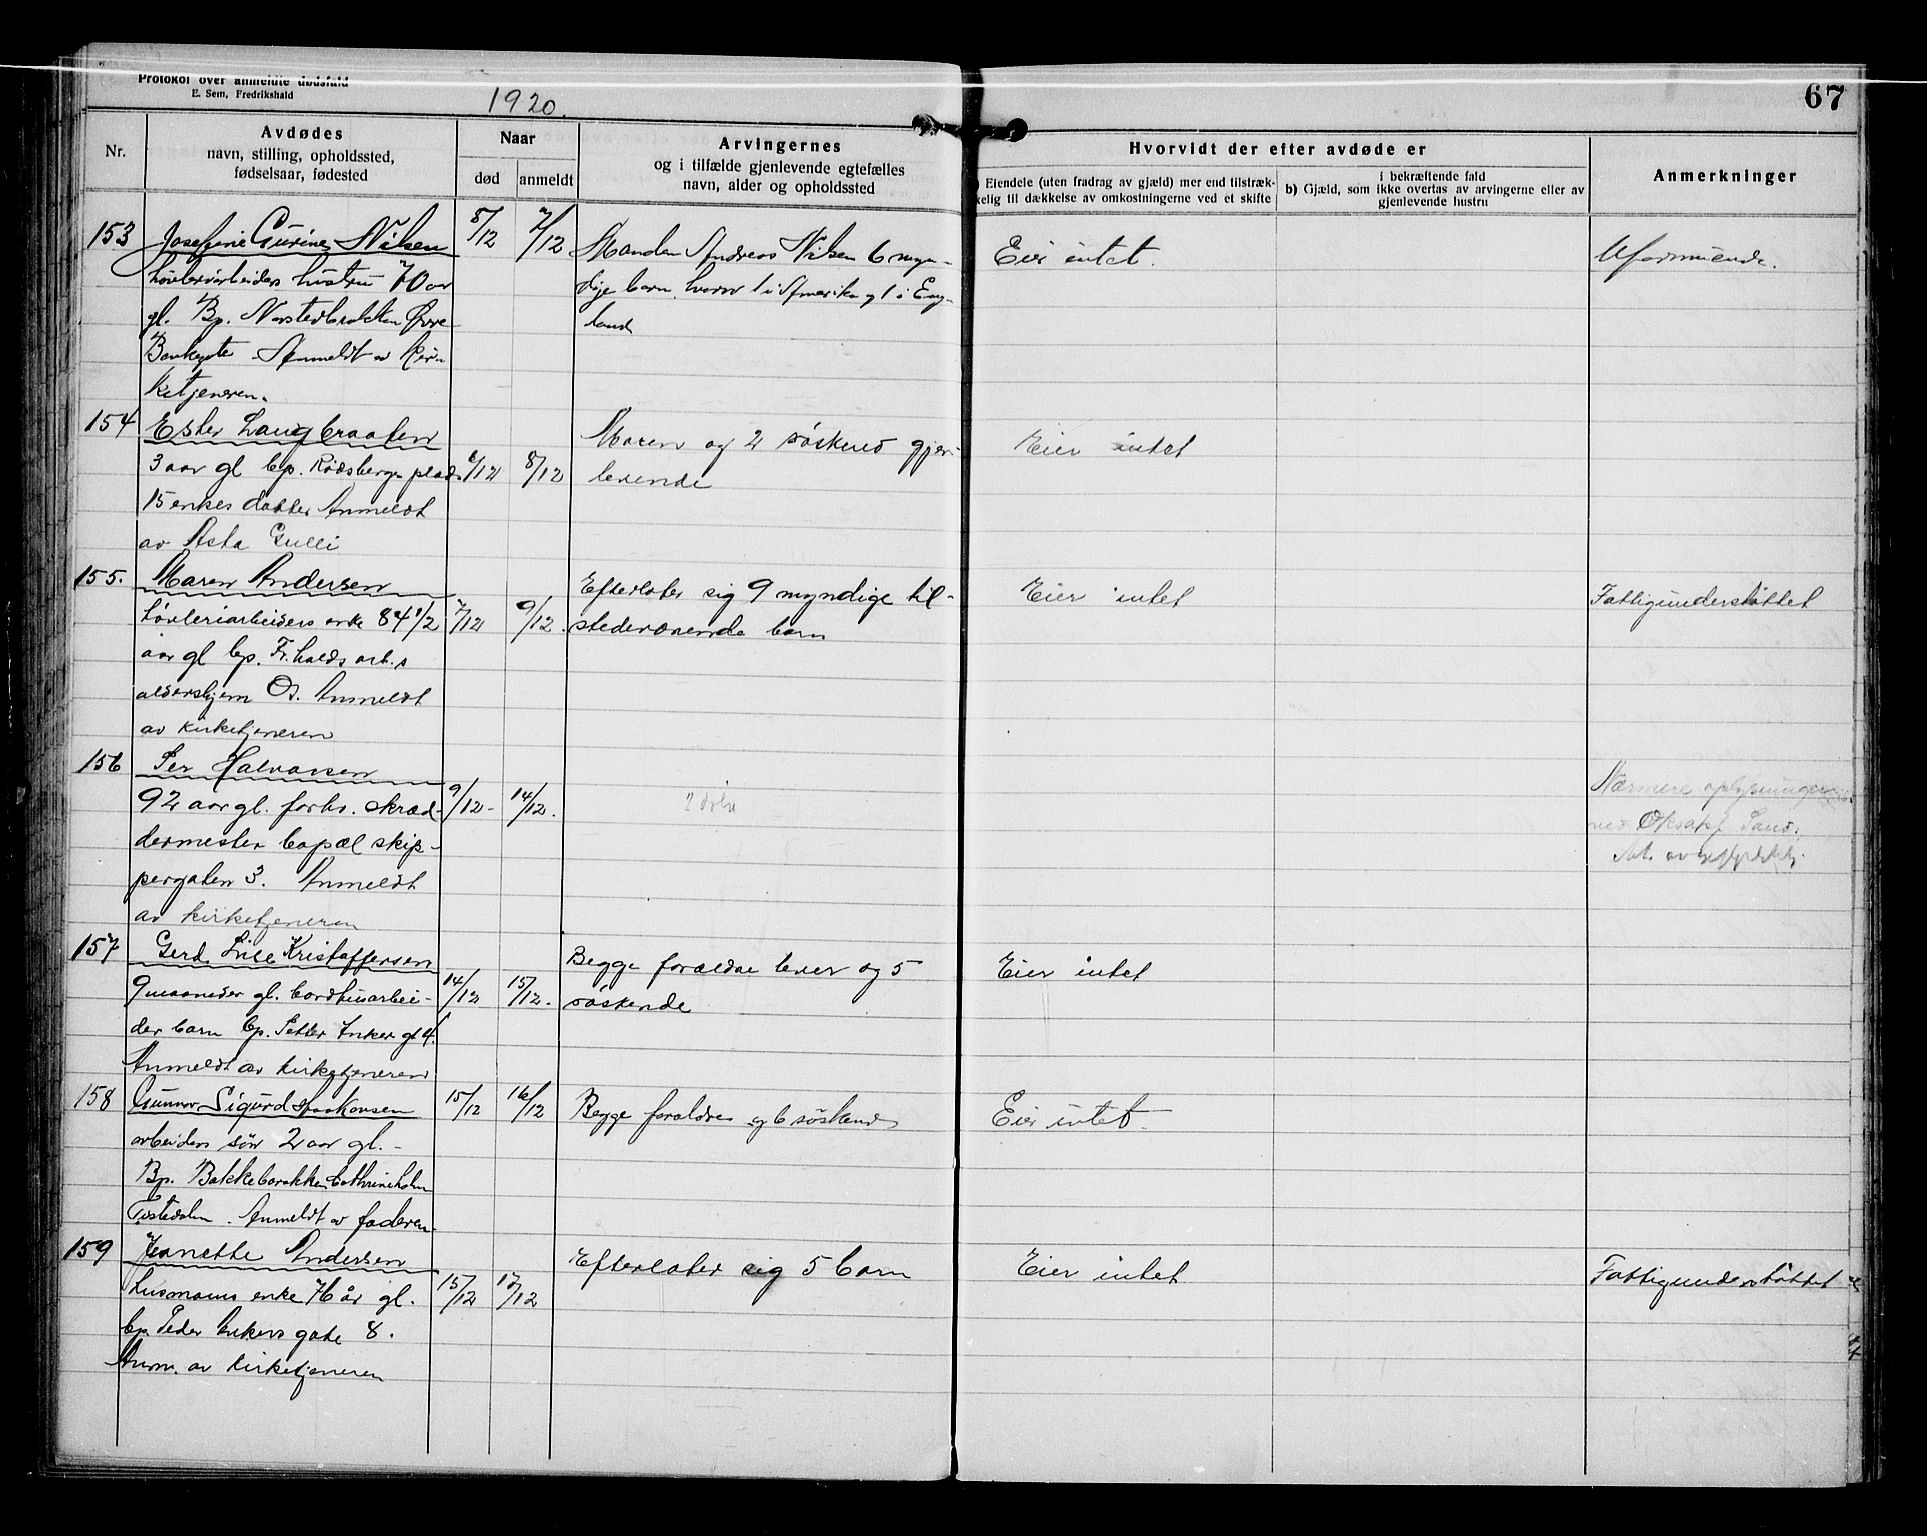 Protokol over anmeldte dødsfald
E. Sem, Fredrikshald
1920.
67
Nr.
Avdødes
navn, stilling, opholdssted,
fødselsaar, fødested
Naar
død
anmeldt
Arvingernes
og i tilfælde gjenlevende egtefælles
navn, alder og opholdssted
Hvorvidt der efter avdøde er
) Eiendele (uten fradrag av gjæld) mer end tilstræk-
kelig til dækkelse av omkostningerne ved et skifte
i bekræftende fald
b) Gjæld, som ikke overtas av arvingerne eller av
gjenlevende hustru
Anmerkninger
153
Josefine Gurine Nilsen
høvleriarbeiders hustru 70 aar
gl. Bp. Øvre
Bankegate Anmeldt av Kir-
ketjeneren.
5/12
7/12
Manden Andreas Nilsen 6 myn-
dige barn, hvorav 1 i Amerika og 1 i Eng-
land
Eier intet.
Uformuende.
154
Ester Langbraaten
3 aar gl bp. Rødsberg plads
15 enkes datter Anmeldt
av Asta Gulli
6/12
8/12
Moren og 2 søskend gjen-
levende
Eier intet
155.
Maren Andersen
høvleriarbeiders enke 84 1/2
aar gl bp. Fr.halds arb.s
aldershjem Os. Anmeldt
av kirketjeneren
7/12
9/12.
Efterlater sig 9 myndige til-
stedeværende barn
Eier intet
Fattigunderstøttet
156
Per Halvorsen
92 aar gl. forhv. skræd-
dermester bopæl skip-
pergaten 3. Anmeldt
av kirketjeneren
9/12-
14/12.
Nærmere oplysninger
ved Oksakf Sand.
157
Gerd Lill Kristoffersen
9 maaneder gl. bordhusarbei-
der barn bp. Petter Anker gt 4.
Anmeldt av kirketjeneren
14/12
15/12.
Begge forældre lever og 5
søskende
Eier intet
158
Gunnar Sigurd Haakonsen
arbeiders søn 2 aar gl. -
Bp. Bakkebarakken Cathrineholm
Tistedalen. Anmeldt av faderen
15/12
16/12
Begge forældre og 6 søskende
Eier intet.
159
Jeanette Andersen
husmanns enke 76 år gl.
bp. Peder Ankers gate 8.
Anm. av kirketjeneren
15/12
17/12
Efterlater sig 5 barn
Eier intet
Fattigunderstøttet